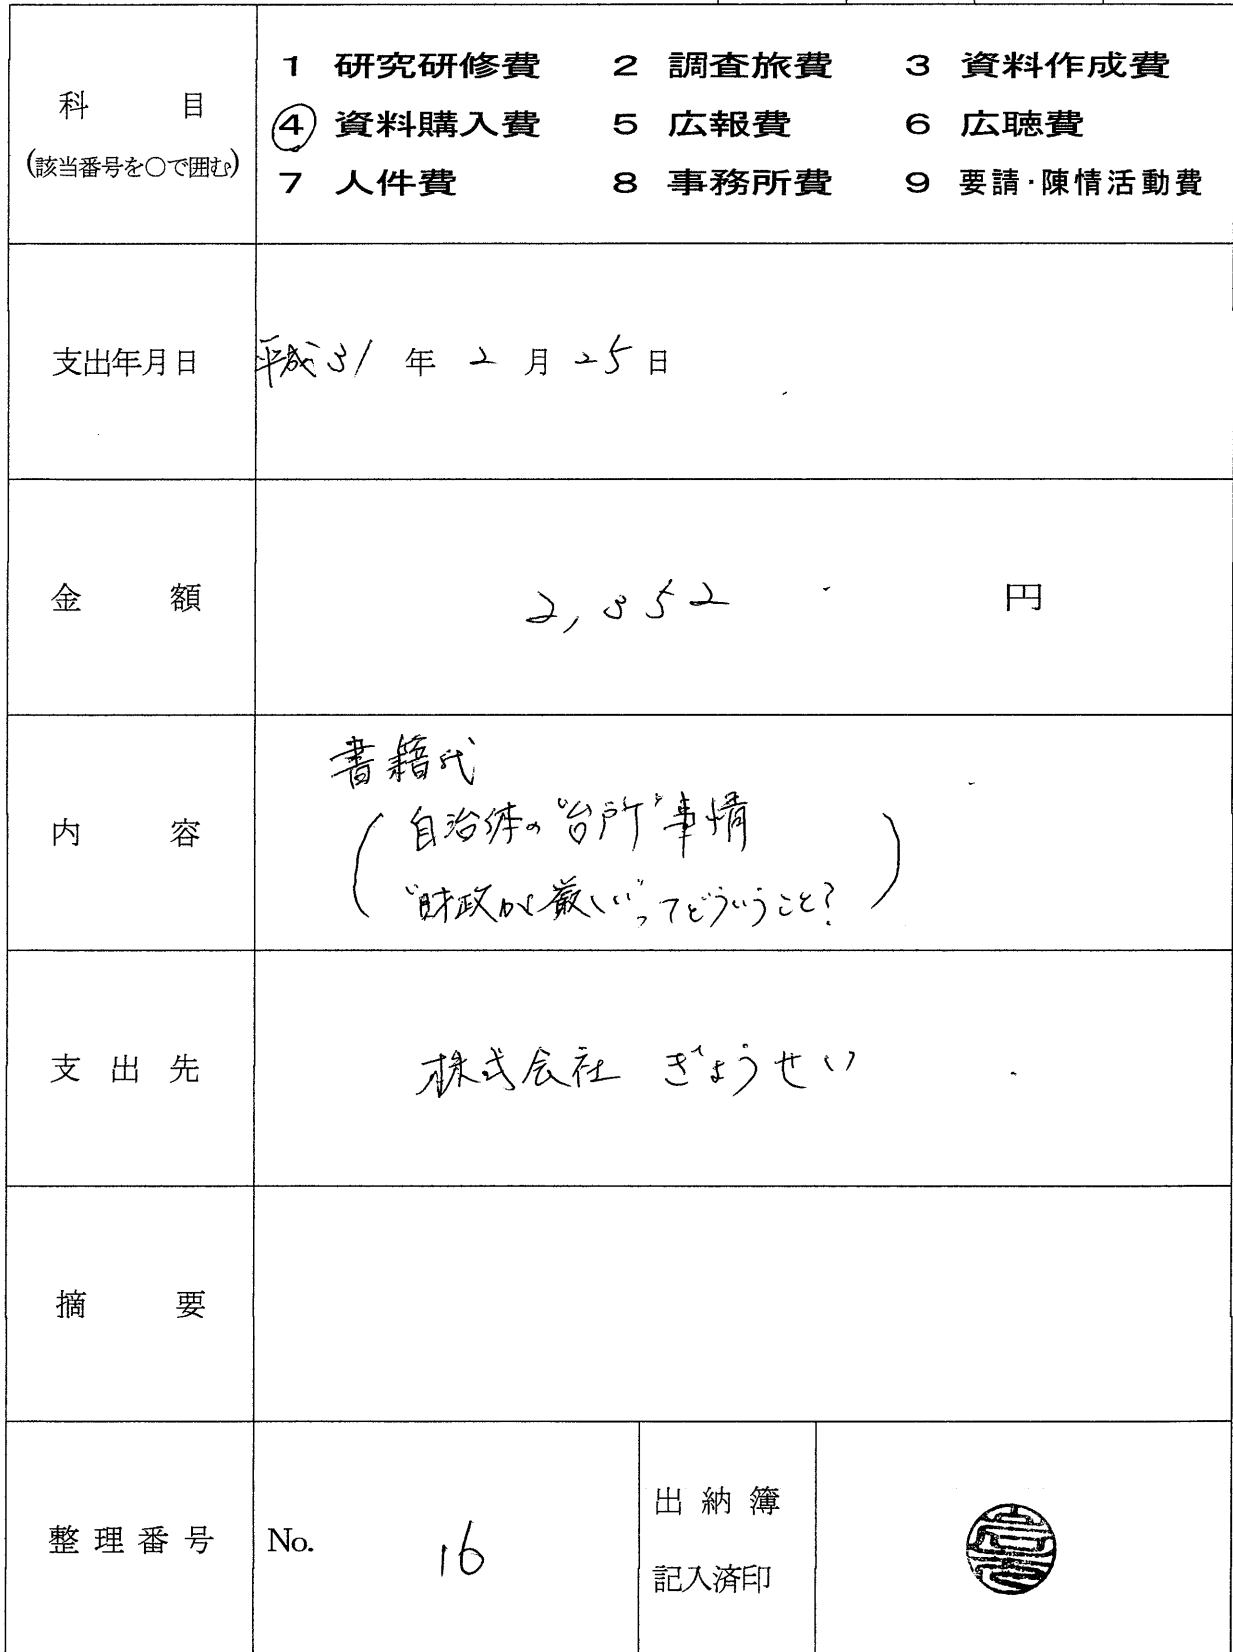 科目
(該当番号を○で囲む)
1 研究研修費 2 調査旅費 3 資料作成費
④ 資料購入費 5 広報費 6 広聴費
7 人件費 8 事務所費 9 要請・陳情活動費
支出年月日 平成31年2月25日
金額 2,352 円
内容
書籍代
(自治体の“台所”事情
“財政が厳しい”ってどういうこと?)
支出先 株式会社 ぎょうせい
摘要
整理番号 No. 16
出納簿
記入済印